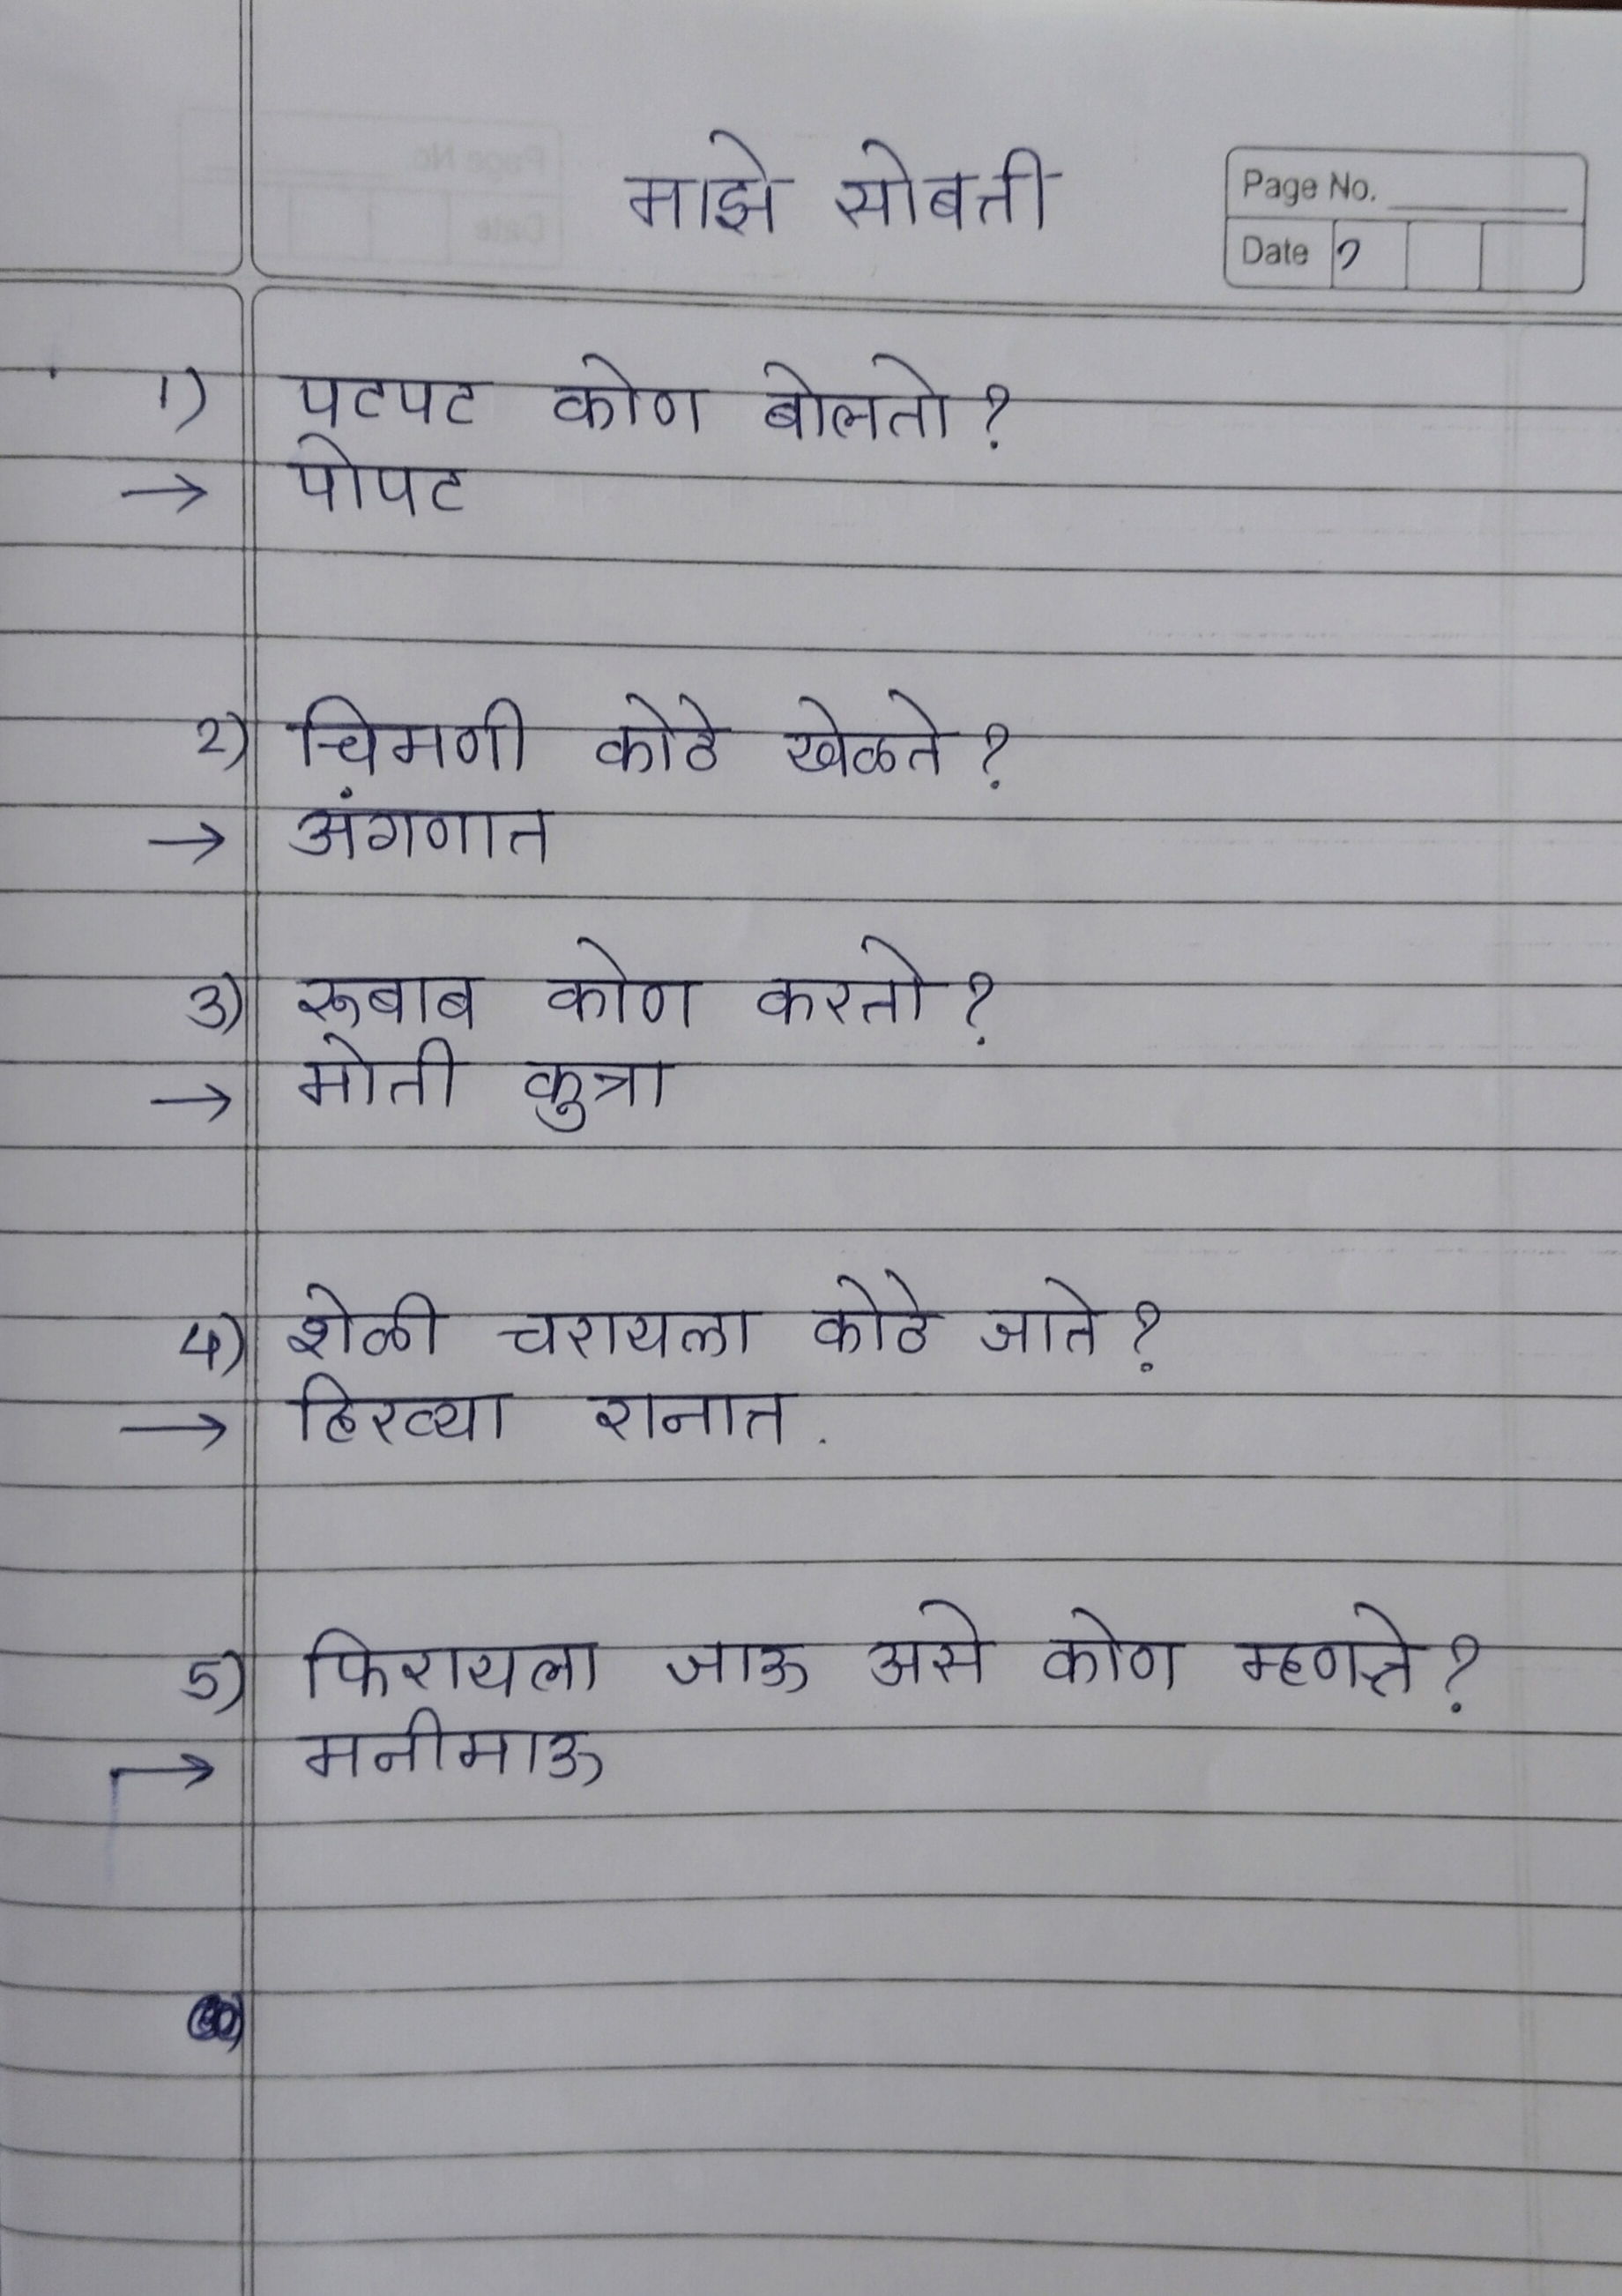 माझे सोबती
Page No.
Date
1) पटपट कोण बोलतो?
→ पोपट
2) चिमणी कोठे खेळते?
→ अंगणात
3) रूबाब कोण करतो?
→ मोती कुत्रा
4) शेळी चरायला कोठे जाते?
→ हिरव्या रानात.
5) फिरायला जाऊ असे कोण म्हणते?
→ मनीमाऊ